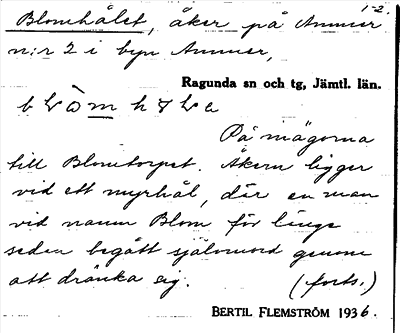 1-2.
Blomhålet, åker på Ammer
n:r 2 i byn Ammer,
Ragunda sn och tg, Jämtl. län.
På mägorna
till Blomtorpet. Åkern ligger
vid ett myrhål, där en man
vid namn Blom för länge
sedan begått självmord genom
att dränka sig. (forts.)
BERTIL FLEMSTRÖM 1936.